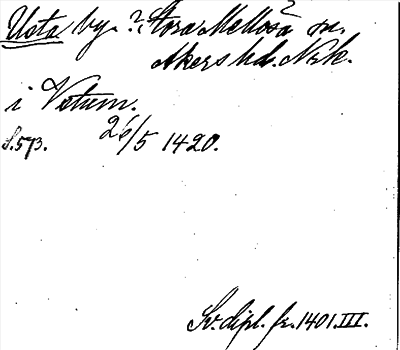 Usta by. ? Stora Mellösa sn.
?
Akers hd. Nrk.
i Vstum.
S. 573. 26/5 1420.
Sv. dipl. fr. 1401. III.